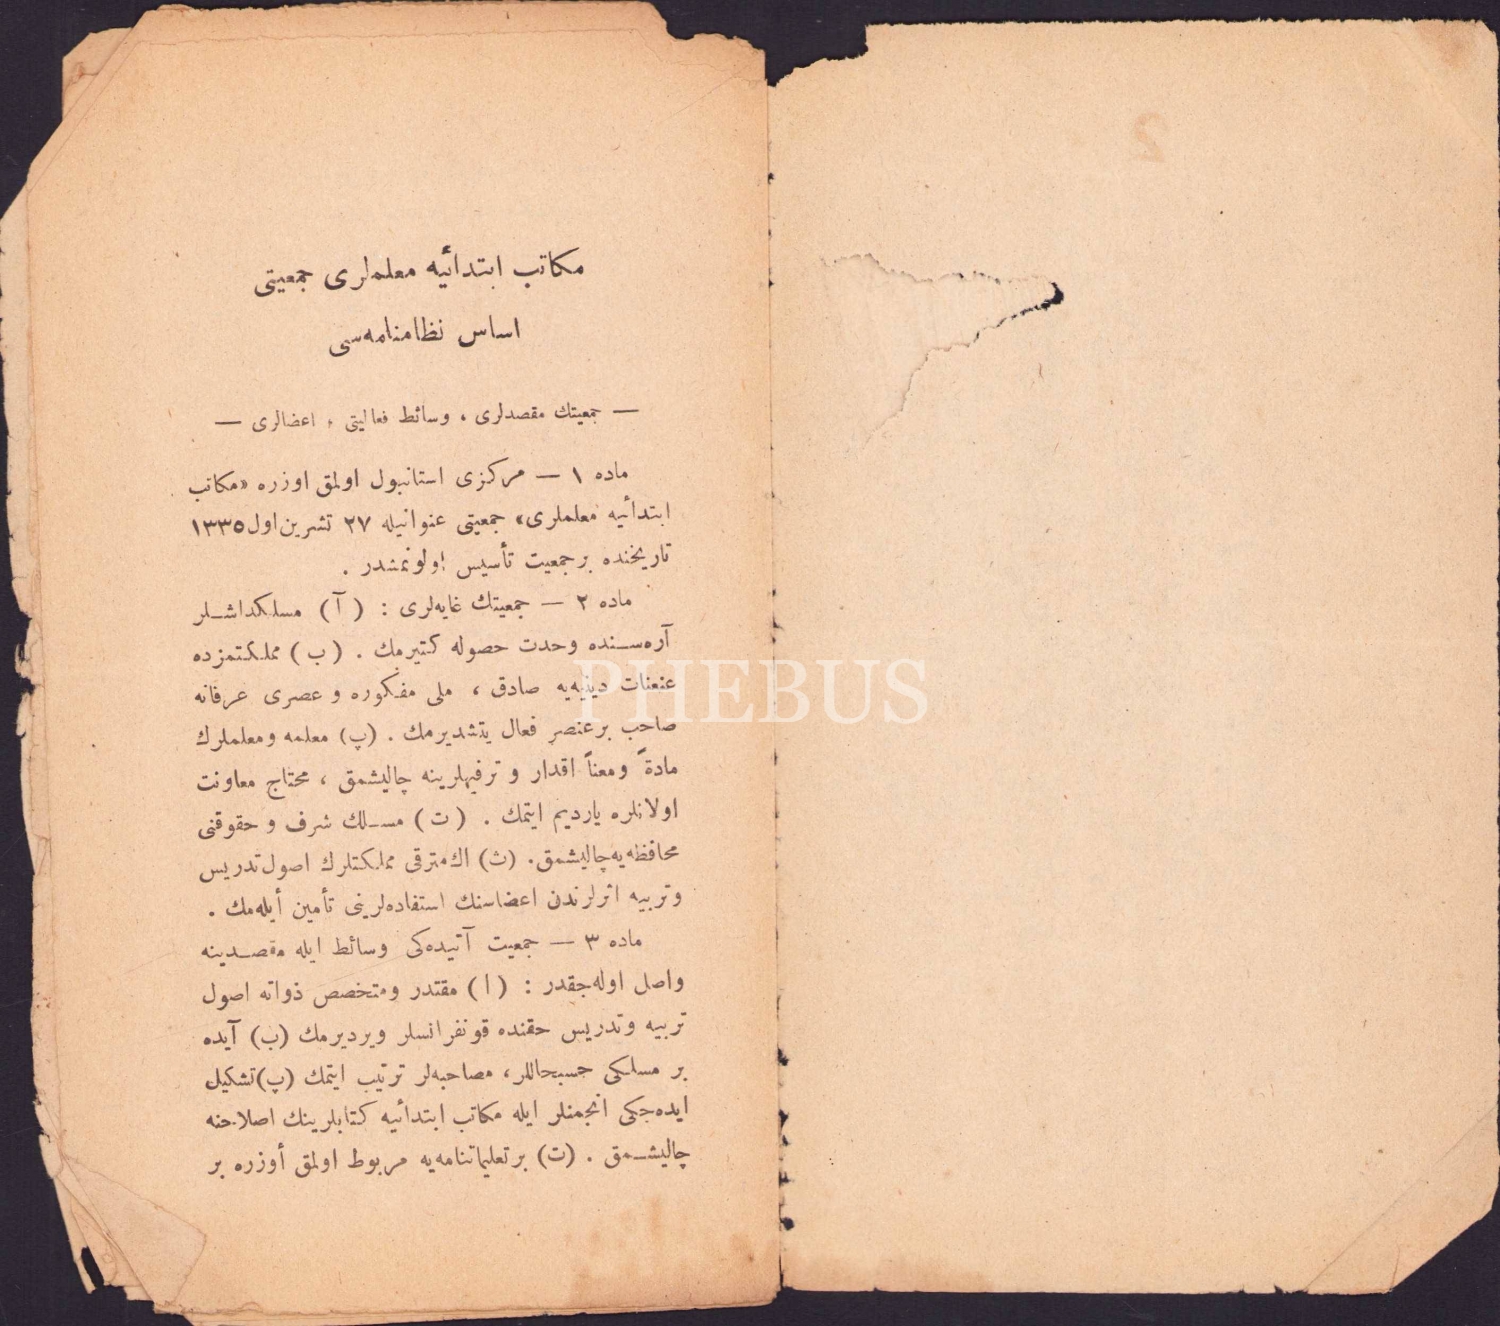 مکاتب ابتدائیه معلملری جمعیتی
اساس نظامنامه‌سی
— جمعیتك مقصدلری ، وسائط فعالیتی ، اعضالری —
ماده ۱ — مرکزی استانبول اولمق اوزره «مکاتب
ابتدائیه معلملری» جمعیتی عنوانیله ۲۷ تشرین‌اول ۱۳۳۵
تاریخنده بر جمعیت تأسیس اولونمشدر .
ماده ۲ — جمعیتك غایه‌لری : ( آ ) مسلکداشلر
آره‌سنده وحدت حصوله کتیرمك . ( ب ) مملکتمزده
عنعنات دینیه‌یه صادق ، ملی مفکوره و عصری عرفانه
صاحب بر عنصر فعال یتشدیرمك . (پ) معلمه و معلملرك
مادةً و معناً اقدار و ترفیهلرینه چالیشمق ، محتاج معاونت
اولانلره یاردیم ایتمك . ( ت ) مسلك شرف و حقوقنی
محافظه‌یه چالیشمق . (ث) اك مترقی مملکتلرك اصول تدریس
و تربیه اثرلرندن اعضاسنك استفاده‌لرینی تأمین أیله‌مك .
ماده ۳ — جمعیت آتیده‌کی وسائط ایله مقصدینه
واصل اوله‌جقدر : ( ا ) مقتدر و متخصص ذواته اصول
تربیه و تدریس حقنده قونفرانسلر ویردیرمك (ب) آیده
بر مسلکی حسبحاللر، مصاحبه‌لر ترتیب ایتمك (پ) تشکیل
ایده‌جکی انجمنلر ایله مکاتب ابتدائیه کتابلرینك اصلاحنه
چالیشمق . (ت) بر تعلیماتنامه‌یه مربوط اولمق أوزره بر
2
PHEBUS